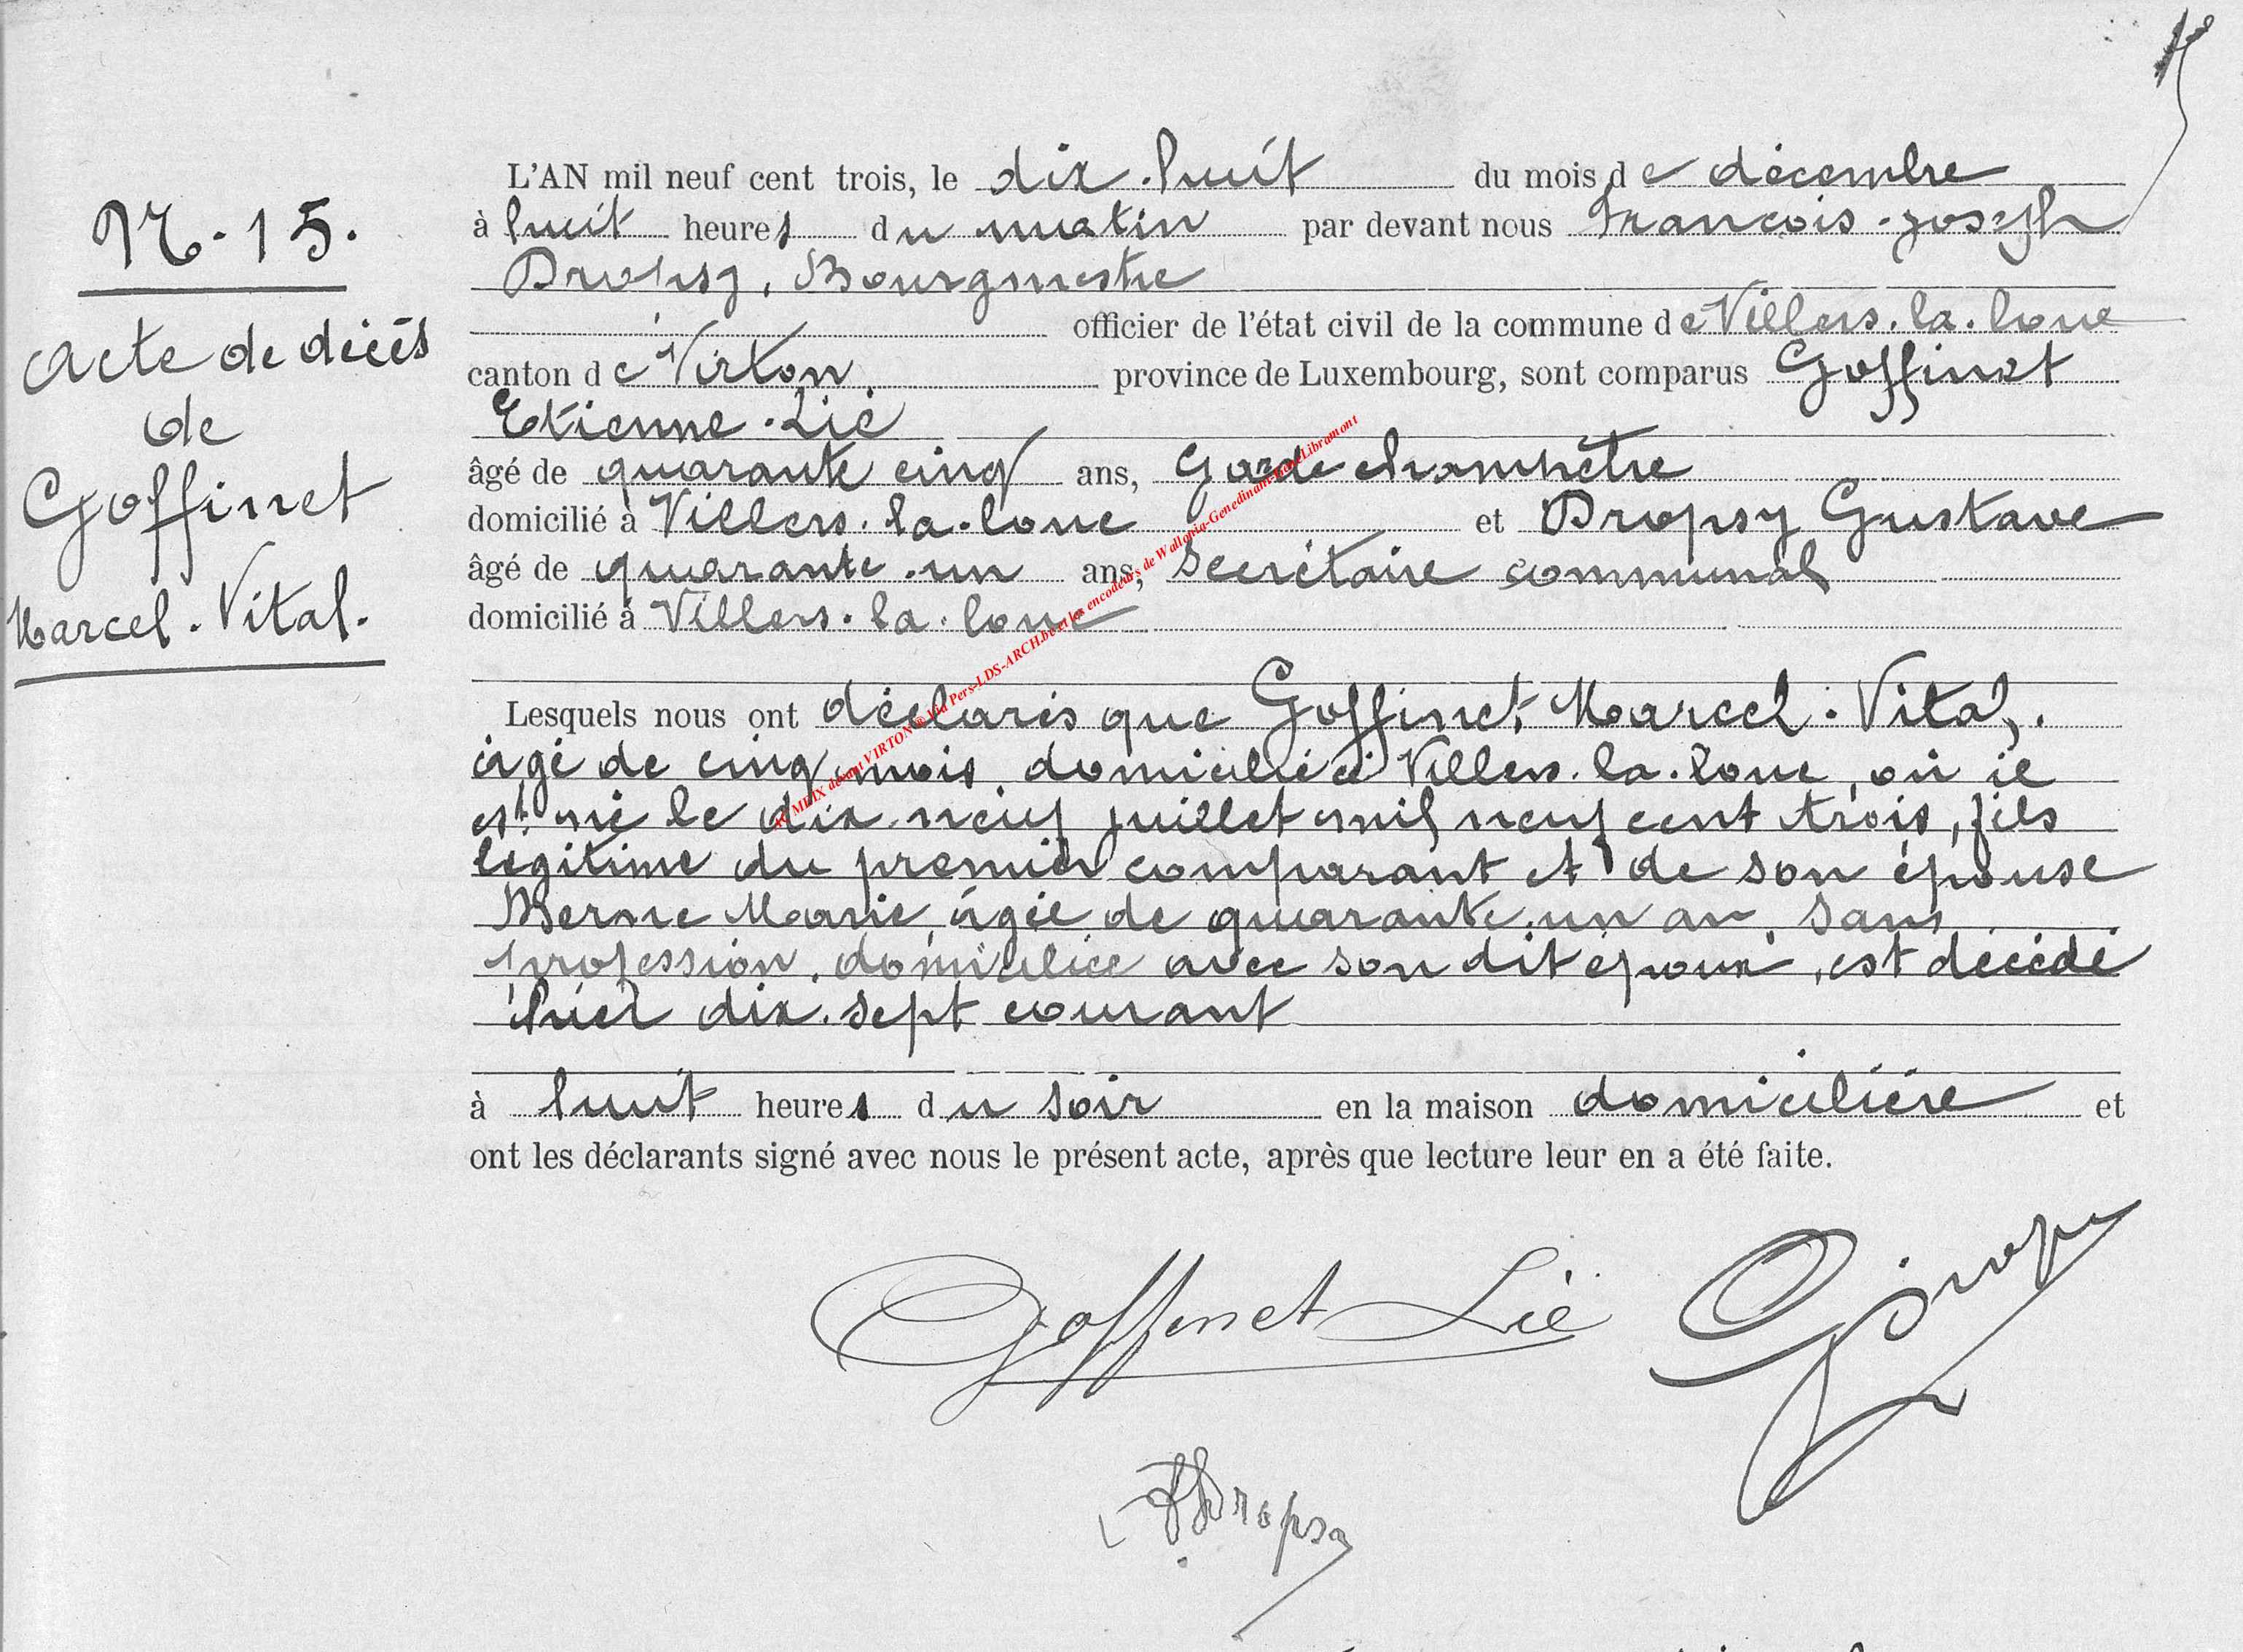 N. 15.
Acte de décès
de
Goffinet
Marcel. Vital.
L'AN mil neuf cent trois, le dix-huit du mois de décembre
à huit heures du matin par devant nous François-Joseph
Dropsy, Bourgmestre
officier de l'état civil de la commune de Villers-la-loue
canton de Virton, province de Luxembourg, sont comparus Goffinet
Etienne-Lié
âgé de quarante cinq ans, Garde champêtre
domicilié à Villers-la-loue et Dropsy Gustave
âgé de quarante-un ans, Secrétaire communal
domicilié à Villers-la-loue
Lesquels nous ont déclarés que Goffinet Marcel-Vital,
âgé de cinq mois, domicilié à Villers-la-loue, où il
est né le dix-neuf juillet mil neuf cent trois, fils
légitime du premier comparant et de son épouse
Berne Marie, âgée de quarante-un an, sans
profession, domiciliée avec son dit époux, est décédé
hier dix-sept courant
à huit heures du soir en la maison domicilière et
ont les déclarants signé avec nous le présent acte, après que lecture leur en a été faite.
Goffinet Lié
GDropsy
FJDropsy